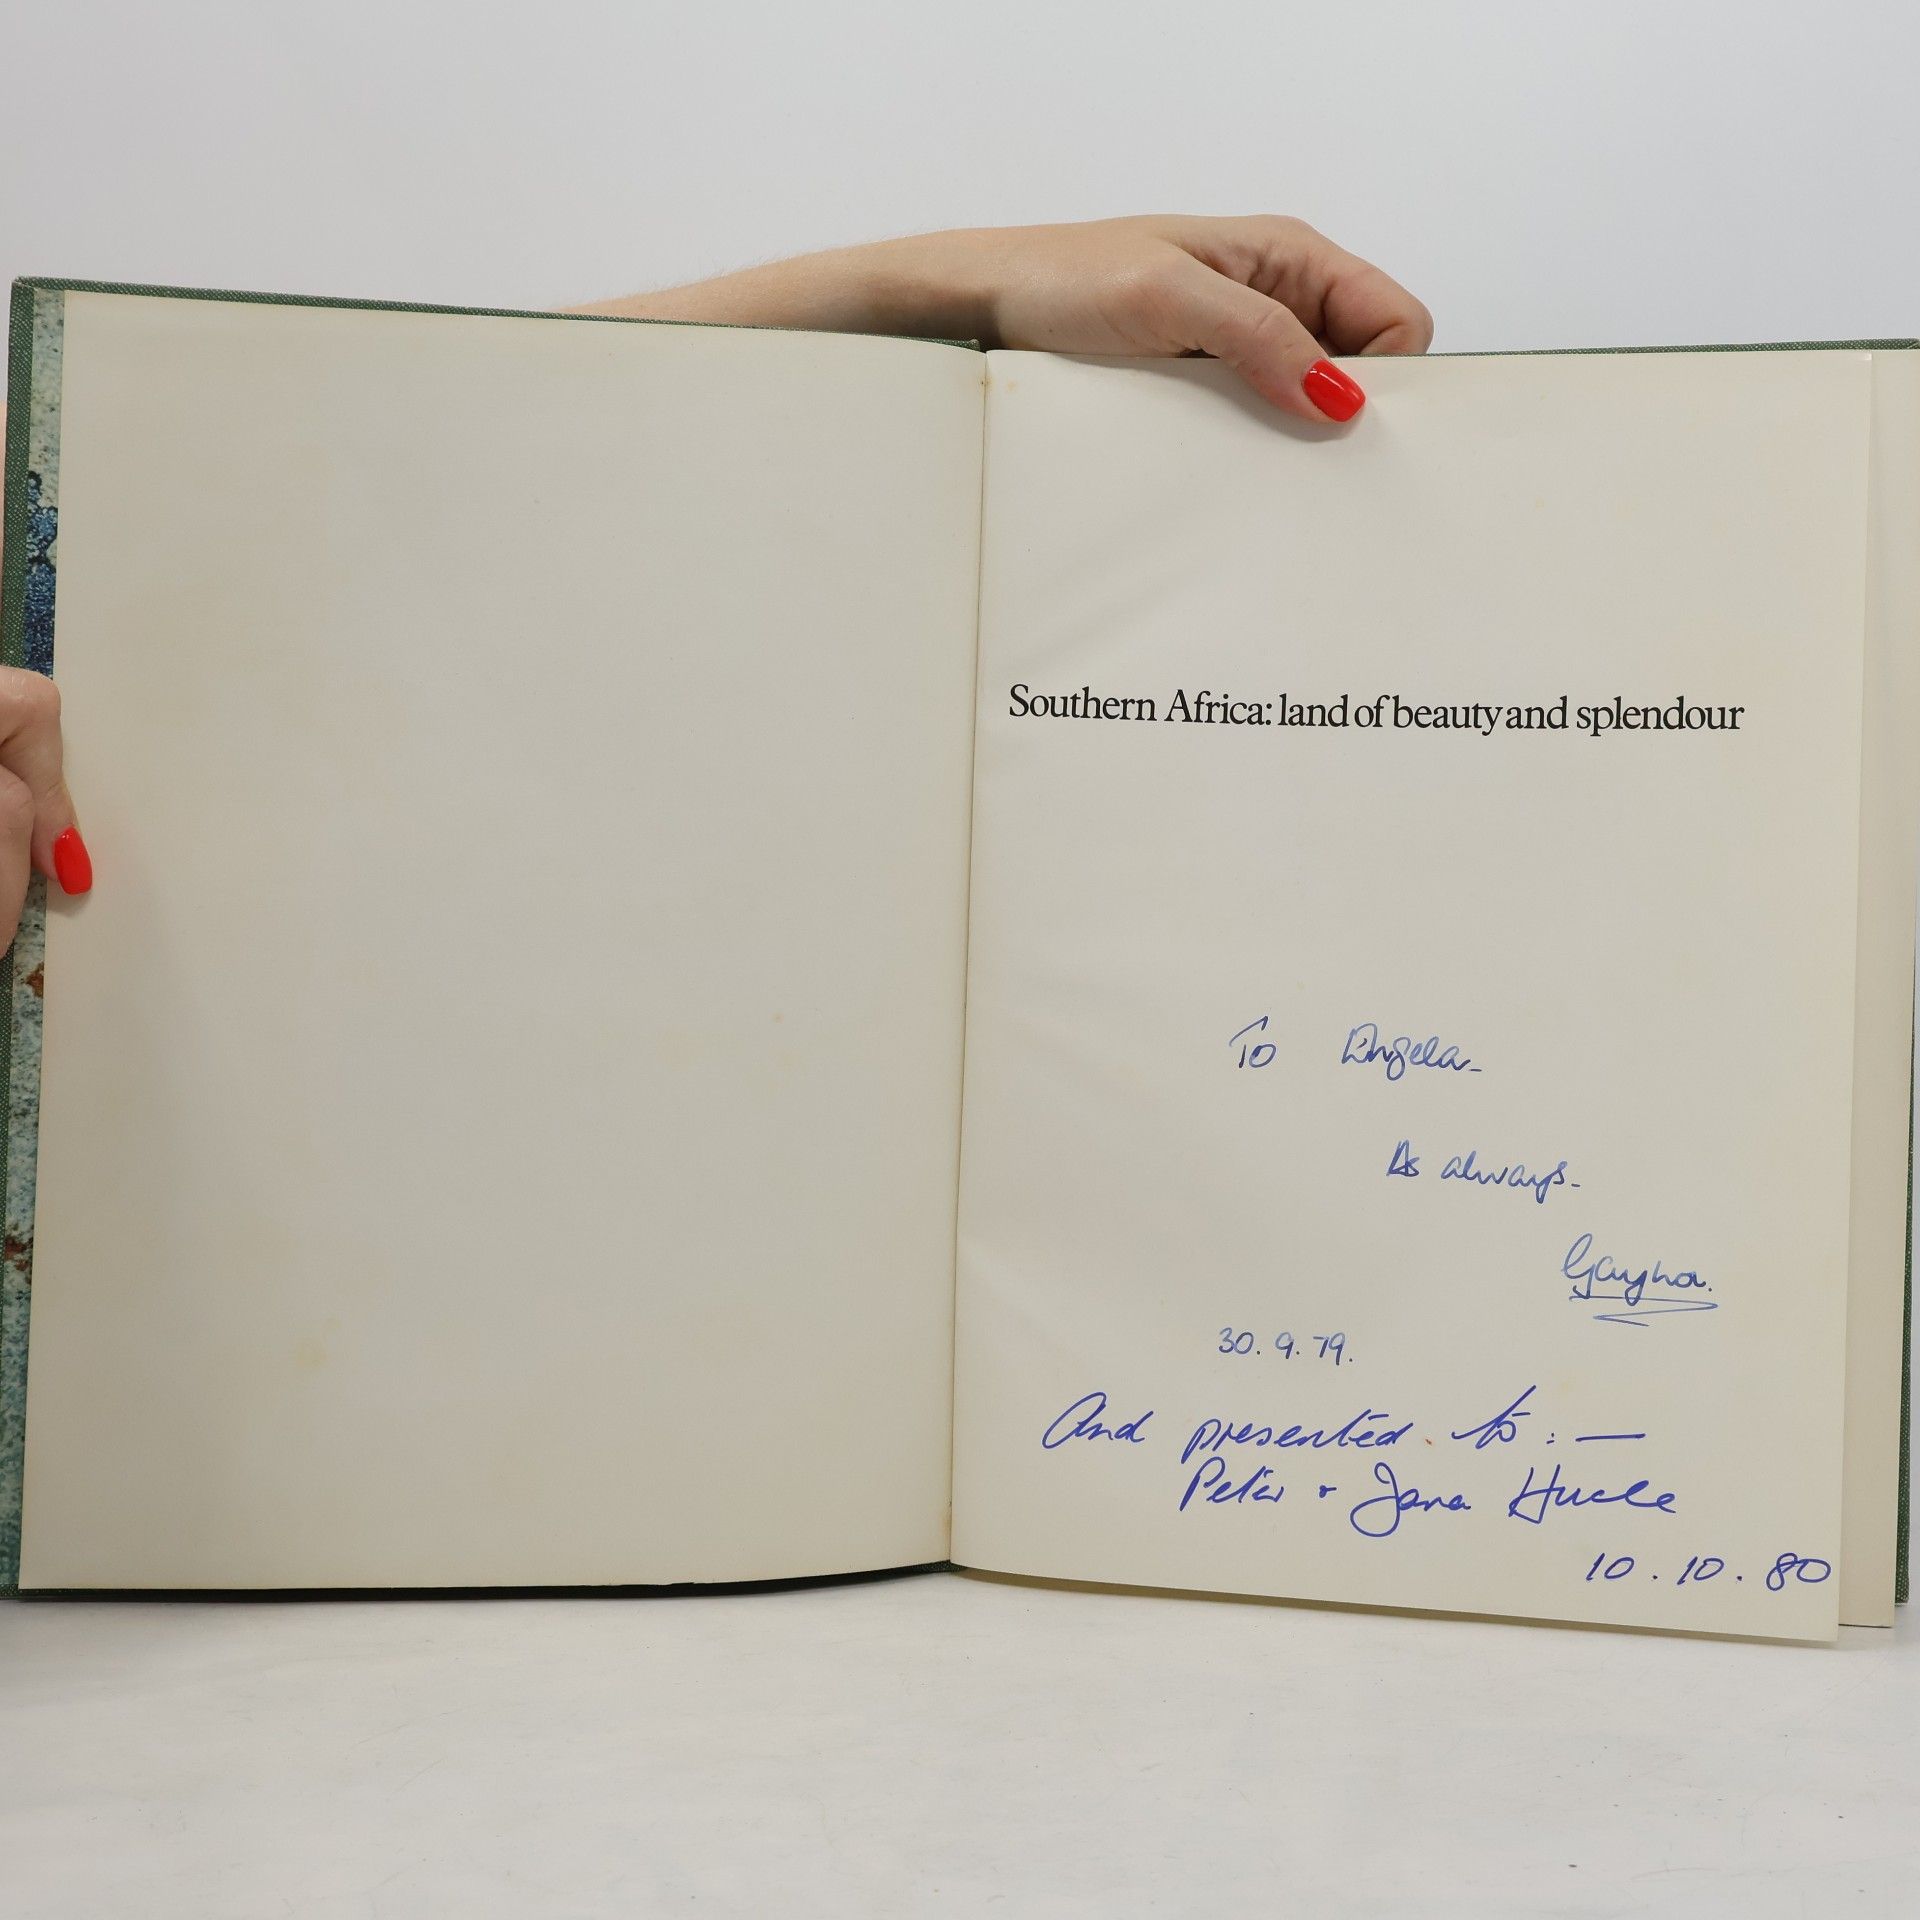 Southern Africa: land of beauty and splendour
To Angela -
As always -
30. 9. 79.
And presented to : —
Peter + Jana
10 . 10 . 80